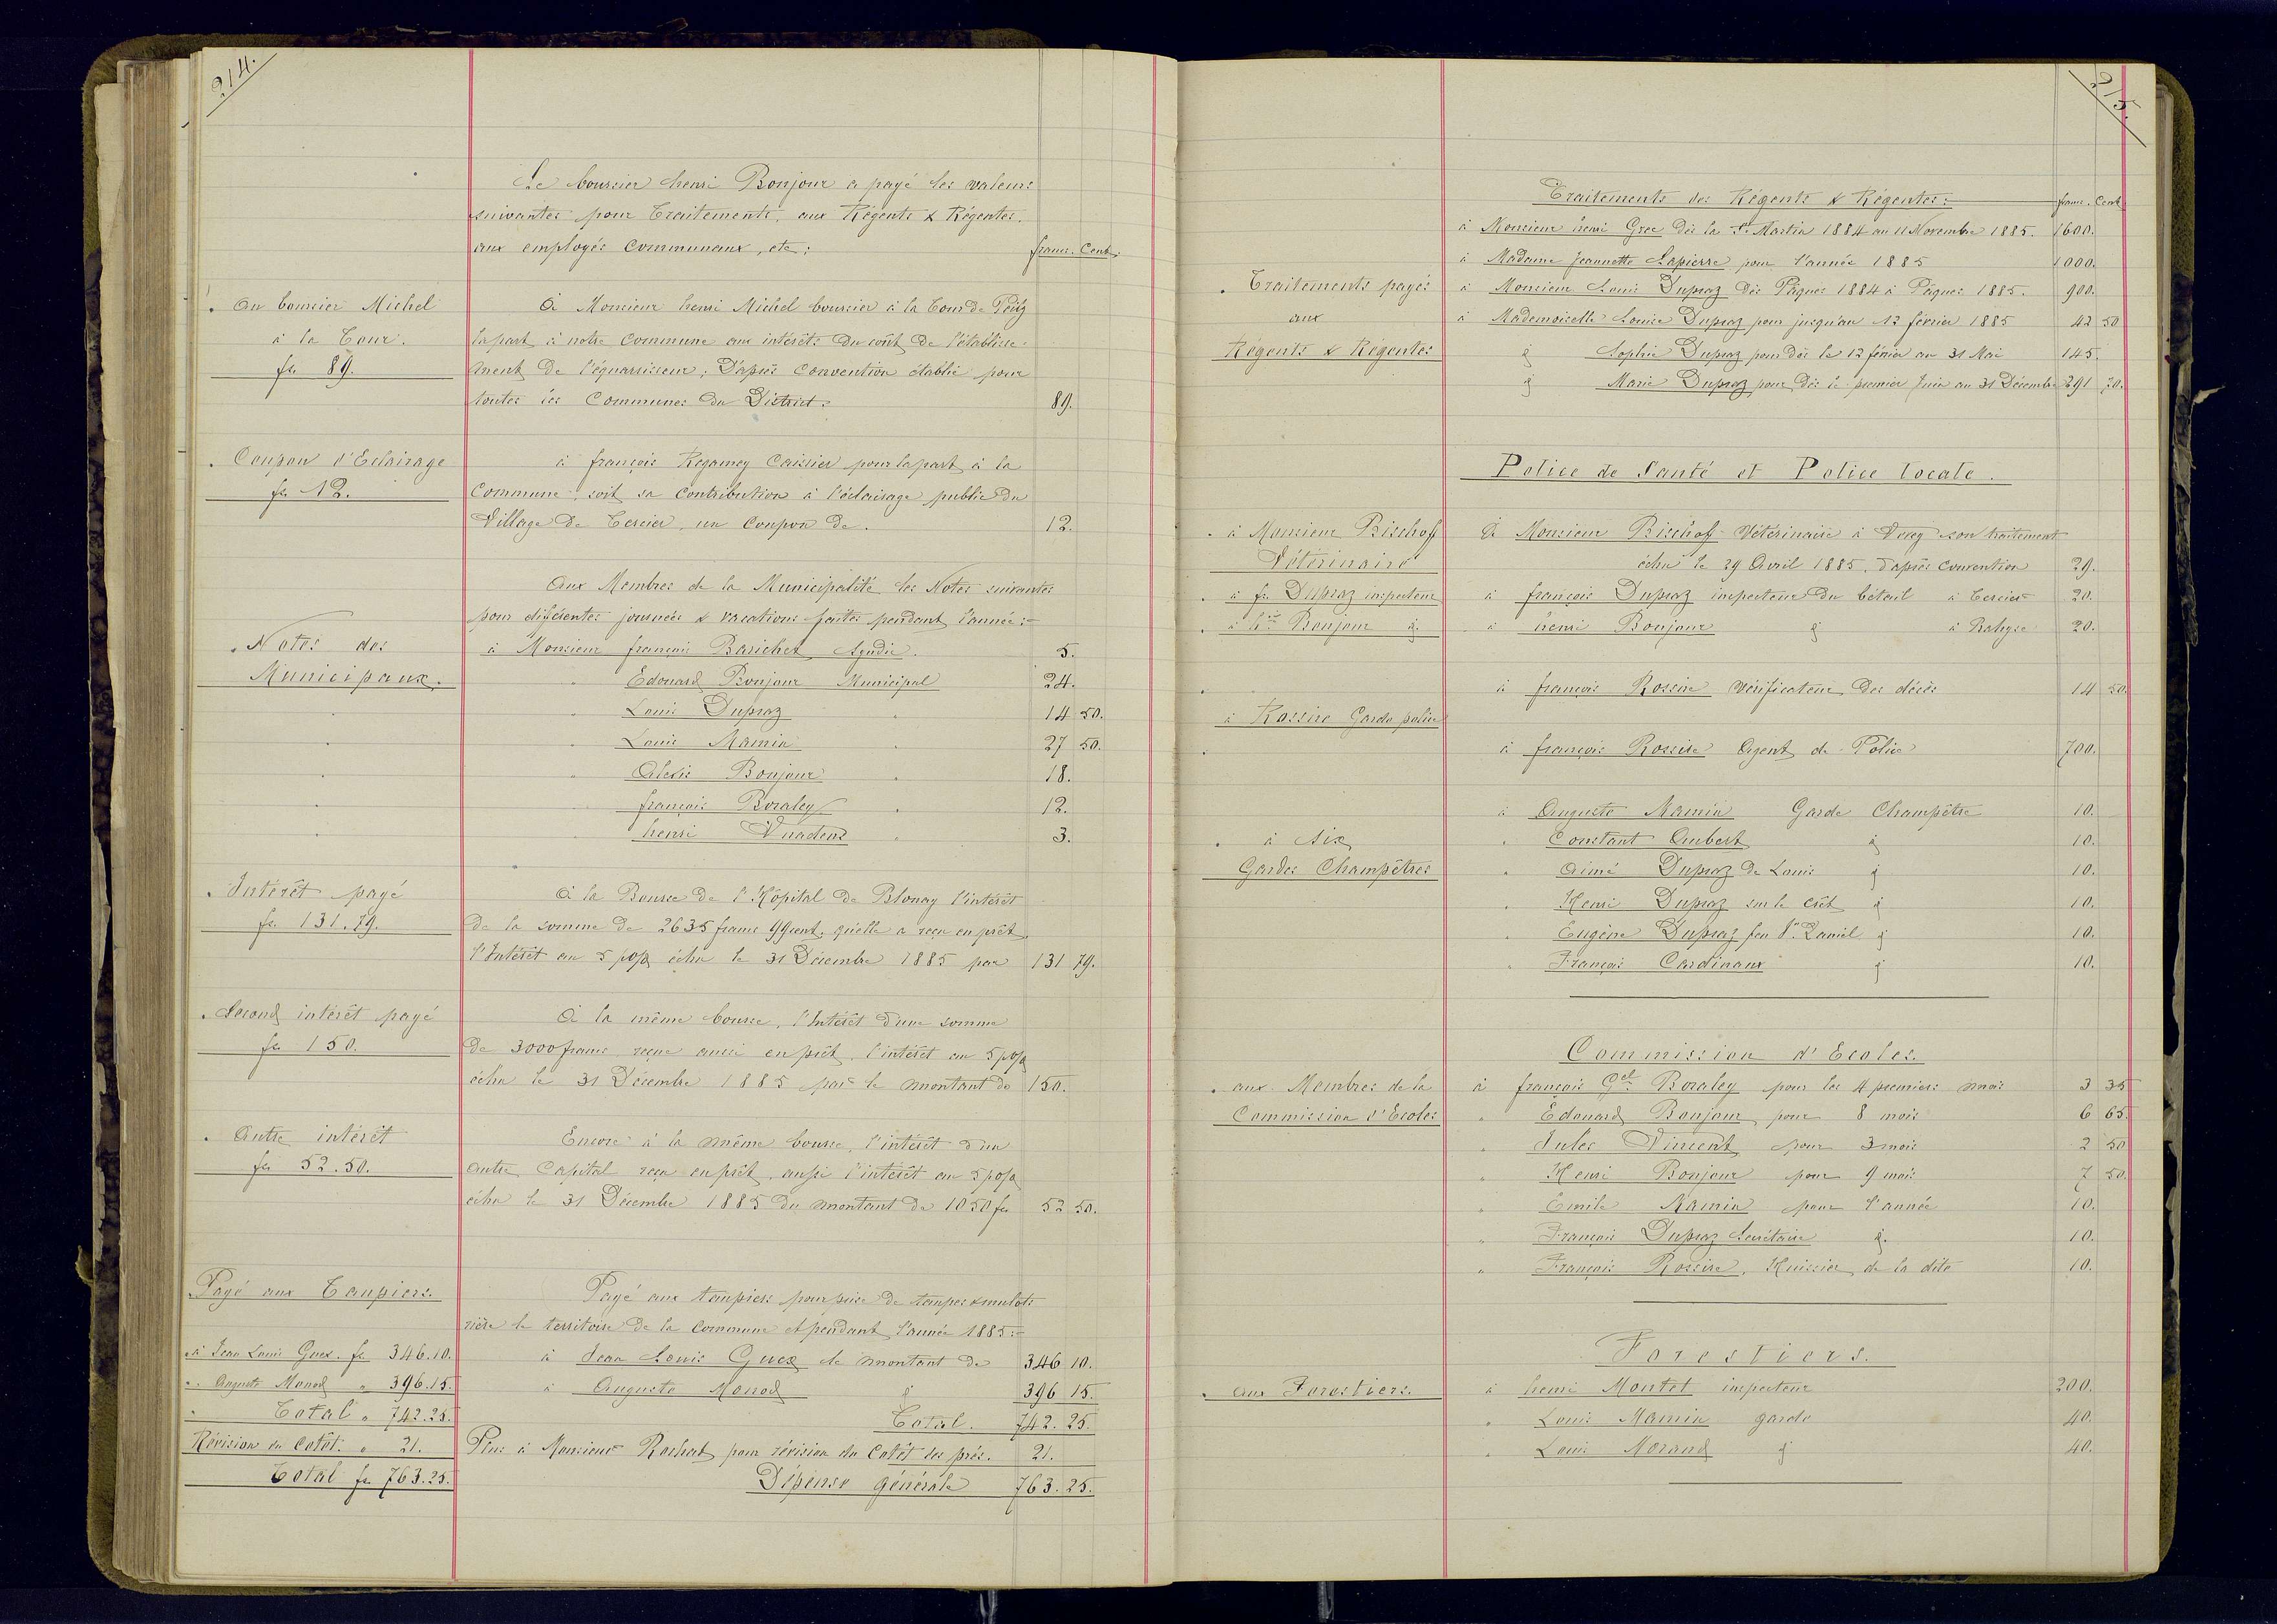 214.
Le boursier henri Bonjour a payé les valeurs
suivantes pour Traitements, aux Régents & Régentes.
aux employés Communaux, etc:
francs. Cent:
Au boursier Michel
à la Tour.
fr 89.
à Monsieur henri Michel boursier à la Tour de Peilz
la part à notre Commune aux intérêts du coût de l'établisse-
ment de l'équarrisseur; D'après Convention établie pour
toutes les Communes du District: 89.
Coupon d'Eclairage
fr 12.
à françois Regamey Caissier pour la part à la
Commune, soit sa Contribution à l'éclairage public du
Village de Tercier, un Coupon de. 12.
Notes des
Municipaux.
Aux Membres de la Municipalité les Notes suivantes
pour différentes journées & vacations faites pendant l'année:-
à Monsieur françois Barichet Syndic. 5.
" Edouard Bonjour Municipal 24.
" Louis Dupraz " 14 50.
" Louis Mamin " 27 50.
" Alexis Bonjour " 18.
" françois Boraley " 12.
" henri Vuadens " 3.
Intérêt payé
fr 131.79.
à la Bourse de l'Hôpital de Blonay l'intérêt
de la somme de 2635 francs 99 cent. qu'elle a reçu en prêt
l'Intérêt au 5 p% échu le 31 Décembre 1885 par 131 79.
Second intérêt payé
fr 150.
à la même bourse, l'Intérêt d'une somme
de 3000 francs reçue aussi en prêt, l'intérêt au 5 p%
échu le 31 Décembre 1885 par le montant de 150.
Autre intérêt
fr 52.50.
Encore à la même bourse, l'intérêt d'un
autre Capital reçu en prêt, aussi l'intérêt au 5 p%
échu le 31 Décembre 1885 du montant de 1050 fr 52 50.
Payé aux Taupiers.
à Jean Louis Guex. fr 346.10.
" Auguste Monod " 396.15.
Total " 742.25.
Révision du Catêt: " 21.
Total fr 763.25.
Payé aux taupiers pour prise de taupes & mulots
rière le territoire de la Commune et pendant l'année 1885:-
à Jean Louis Guex le montant de 346 10.
à Auguste Monod " 396 15.
Total. 742. 25.
Plus à Monsieur Rochat pour révision du Catêt des prés. 21.
Dépense générale 763. 25.
215.
Traitements des Régents & Régentes:
francs. Cent
Traitements payés
aux
Régents & Régentes
à Monsieur henri Grec dès la St Martin 1884 au 11 Novembre 1885. 1600.
à Madame Jeannette Lapierre pour l'année 1885 1000.
à Monsieur Louis Dupraz dès Pâques 1884 à Pâques 1885. 900.
à Mademoiselle Louise Dupraz pour jusqu'au 12 février 1885 42 50
" Sophie Dupraz pour dès le 12 février au 31 Mai 145.
" Marie Dupraz pour dès le premier Juin au 31 Décembre 291 70.
Police de Santé et Police locale.
à Monsieur Bischoff
Vétérinaire
à fr. Dupraz inspecteur
à hri Bonjour "
à Monsieur Bischoff Vétérinaire à Vevey son traitement
échu le 29 Avril 1885, d'après Convention 29.
à françois Dupraz inspecteur du bétail à Tercier 20.
à henri Bonjour " à Bahyse 20.
à françois Rossire Vérificateur des décès 14 50.
à Rossire Garde police
à françois Rossire Agent de Police 700.
à six
Gardes Champêtres
à Auguste Mamin Garde Champêtre 10.
" Constant Aubert " 10.
" Aimé Dupraz de Louis " 10.
" Henri Dupraz sur le crêt " 10.
" Eugène Dupraz feu Jn Daniel " 10.
" François Cardinaux " 10.
Commission d'Ecoles.
aux Membres de la
Commission d'Ecoles
à françois Gel Boraley pour les 4 premiers mois 3 35
" Edouard Bonjour pour 8 mois 6 65
" Jules Vincent pour 3 mois 2 50
" Henri Bonjour pour 9 mois 7 50.
" Emile Mamin pour l'année 10.
" François Dupraz Secrétaire " 10.
" François Rossire, Huissier de la dite 10.
Forestiers.
aux Forestiers.
à henri Montet inspecteur 200.
" Louis Mamin garde 40.
" Louis Morand " 40.